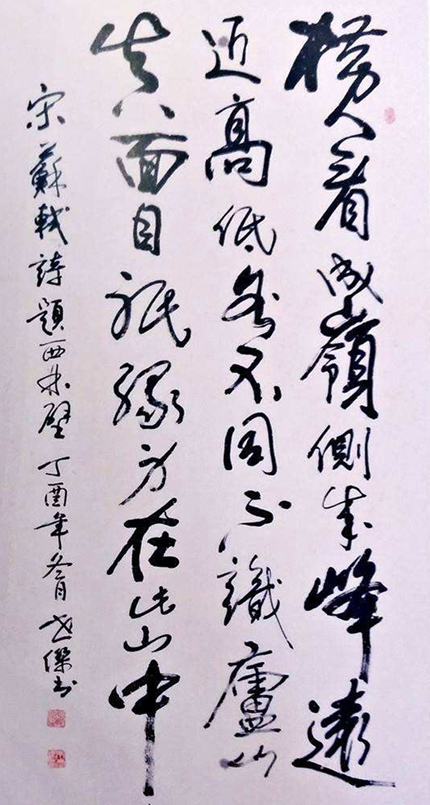 橫看成嶺側成峰遠
近高低各不同不識廬山
真面目祇緣身在此山中
宋蘇軾詩題西林壁 丁酉年冬月 傑书